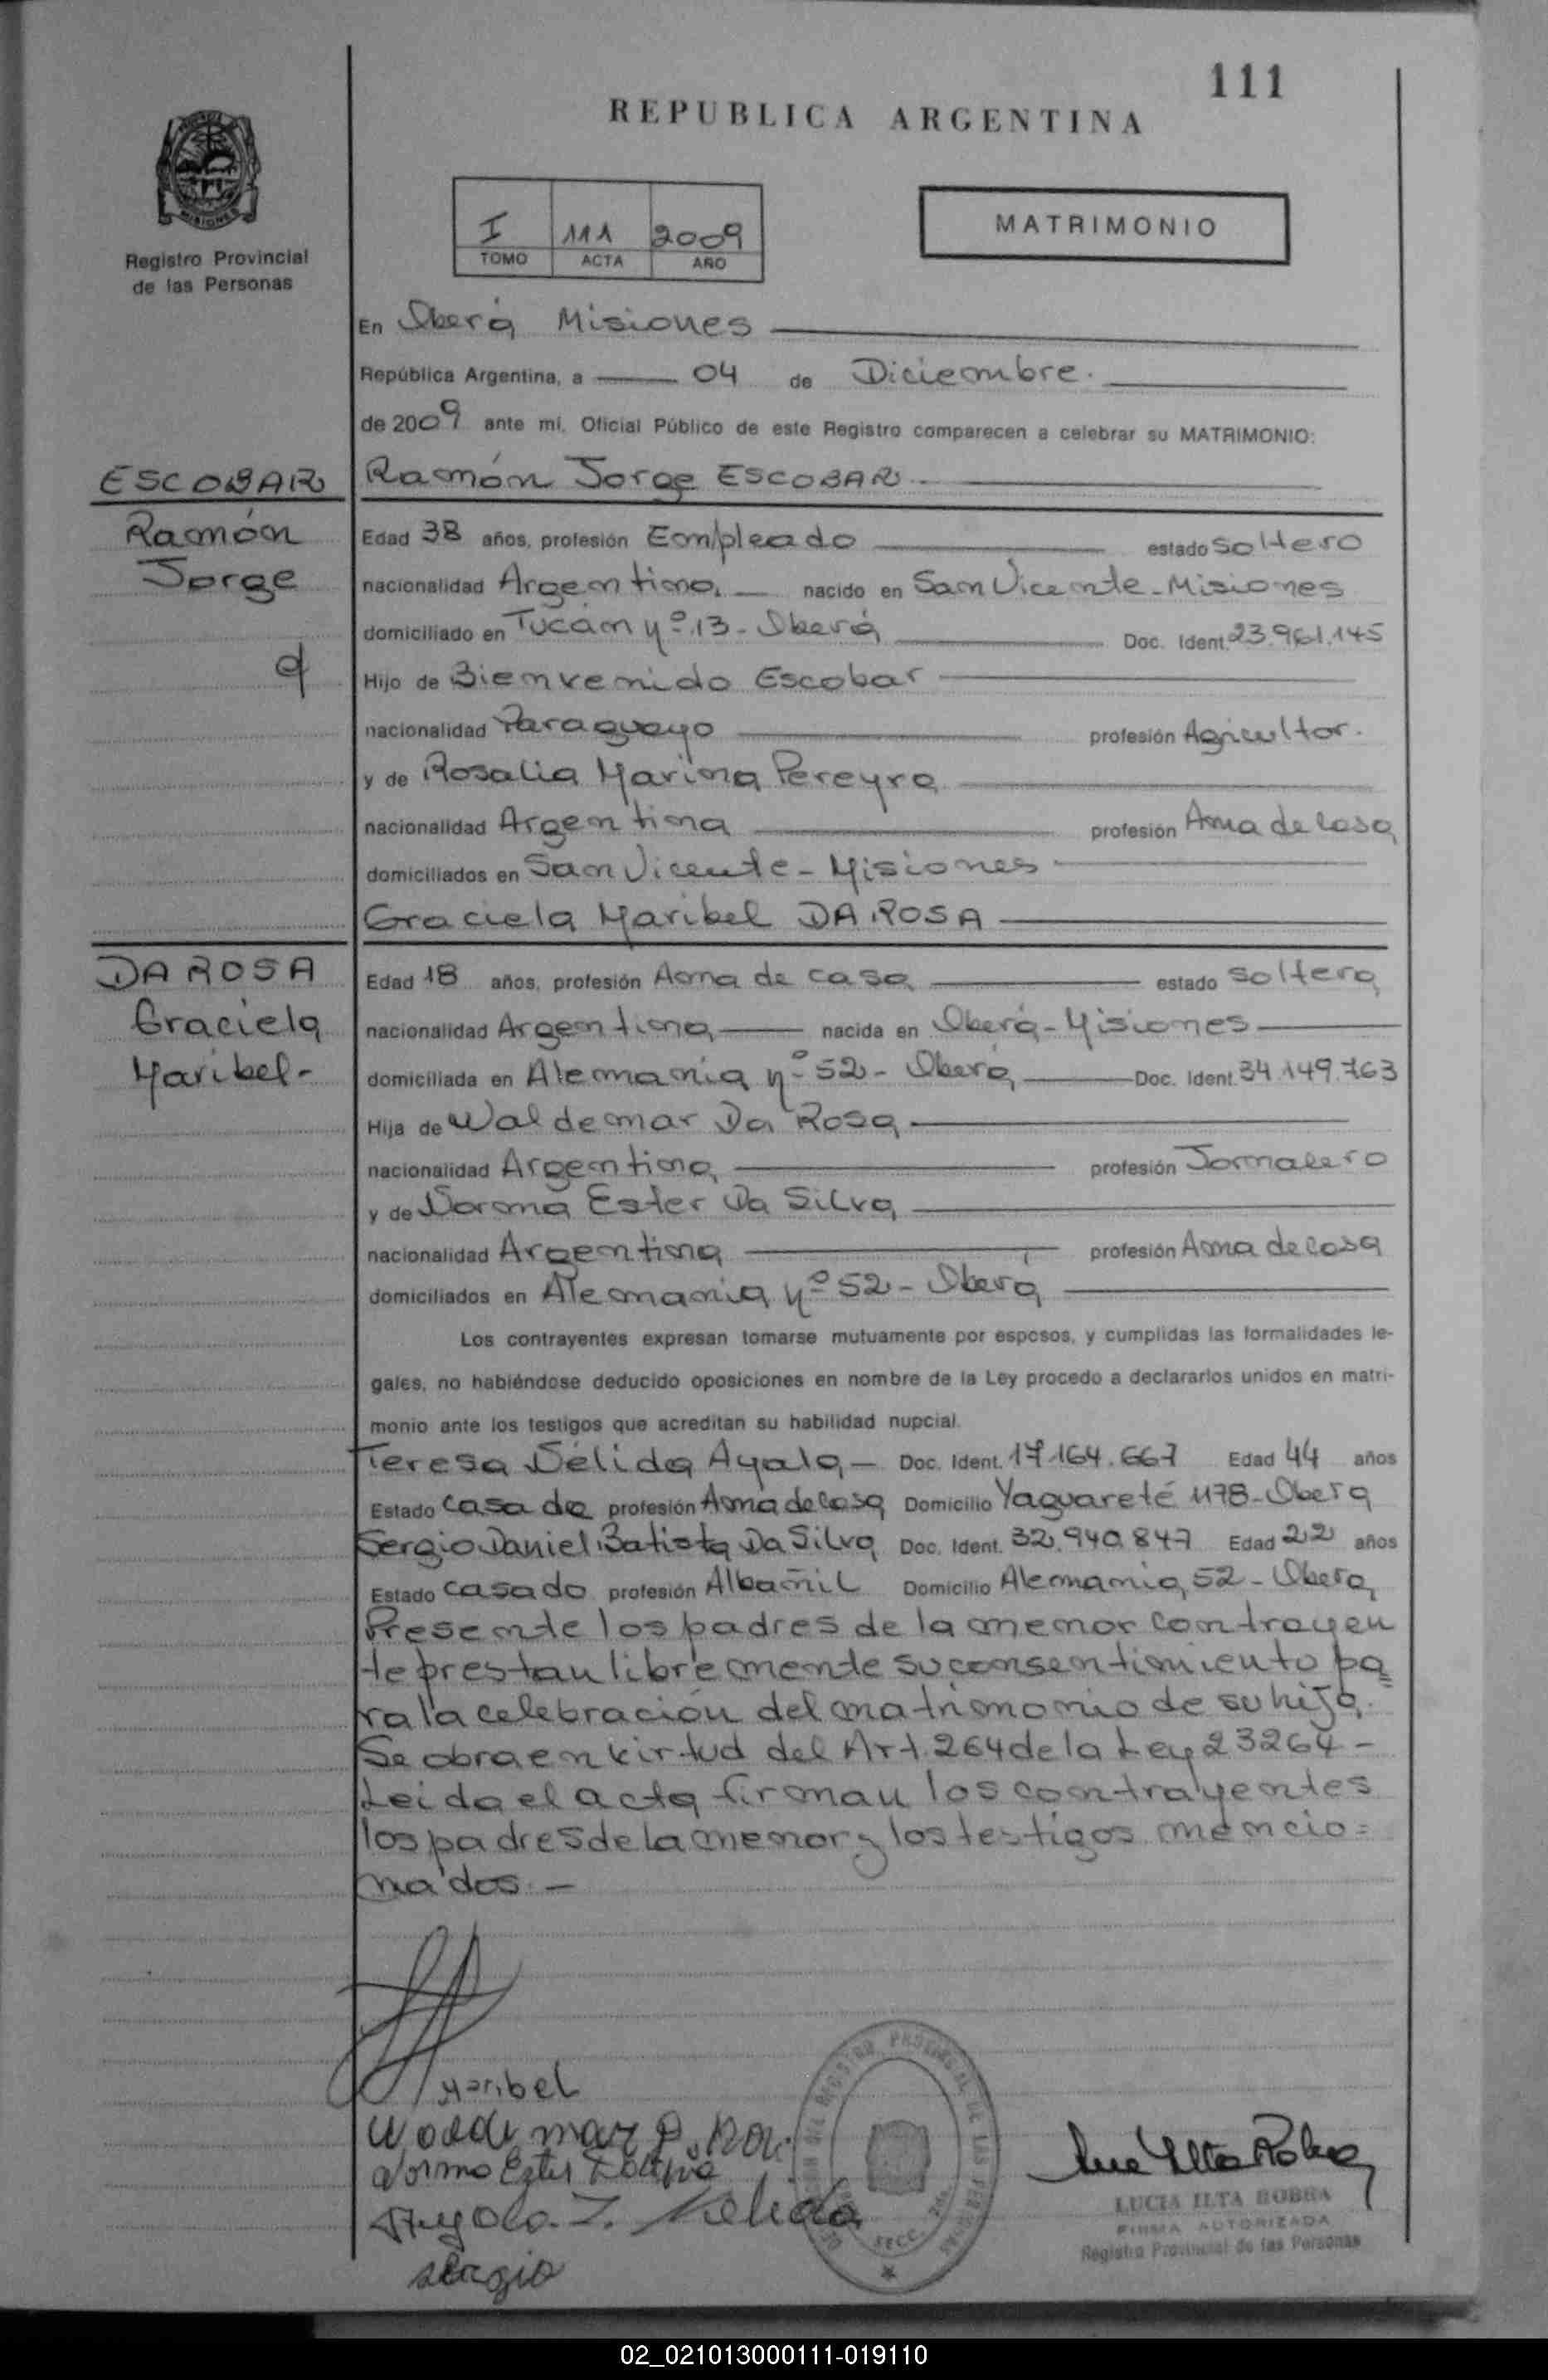 111
REPUBLICA ARGENTINA
MISIONES
Registro Provincial
de las Personas
I 111 2009
TOMO ACTA AÑO
MATRIMONIO
En Oberá Misiones
República Argentina, a 04 de Diciembre.
de 2009 ante mí, Oficial Público de este Registro comparecen a celebrar su MATRIMONIO:
ESCOBAR
Ramón
Jorge
Ramón Jorge ESCOBAR
Edad 38 años, profesión Empleado estado soltero
nacionalidad Argentina nacido en San Vicente - Misiones
domiciliado en Tucán nº 13 - Oberá Doc. Ident. 23.961.145
Hijo de Bienvenido Escobar
nacionalidad Paraguayo profesión Agricultor.
y de Rosalia Marina Pereyra
nacionalidad Argentina profesión Ama de Casa
domiciliados en San Vicente - Misiones
Graciela Maribel DA ROSA
DA ROSA
Graciela
Maribel-
Edad 18 años, profesión Ama de casa estado soltera
nacionalidad Argentina nacida en Oberá - Misiones
domiciliada en Alemania nº 52 - Oberá Doc. Ident. 34.149.763
Hija de Waldemar Da Rosa
nacionalidad Argentina profesión Jornalero
y de Norma Ester Da Silva
nacionalidad Argentina profesión Ama de Casa
domiciliados en Alemania nº 52 - Oberá
Los contrayentes expresan tomarse mutuamente por esposos, y cumplidas las formalidades le-
gales, no habiéndose deducido oposiciones en nombre de la Ley procedo a declararlos unidos en matri-
monio ante los testigos que acreditan su habilidad nupcial.
Teresa Délida Ayala - Doc. Ident. 17.164.667 Edad 44 años
Estado casada profesión Ama de Casa Domicilio Yaguareté 1178 - Oberá
Sergio Daniel Batista Da Silva Doc. Ident. 32.940.847 Edad 22 años
Estado casado profesión Albañil Domicilio Alemania 52 - Oberá
Presente los padres de la menor contrayen
te prestan libremente su consentimiento pa=
ra la celebración del matrimonio de su hija.
Se obra en virtud del Art. 264 de la Ley 23264 -
Leida el acta firman los contrayentes
los padres de la menor y los testigos mencio=
nados. -
Maribel
Norma Ester
Ayala. T. Delida
Sergio
LUCIA ILTA ROBRA
FIRMA AUTORIZADA
Registro Provincial de las Personas
02_021013000111-019110